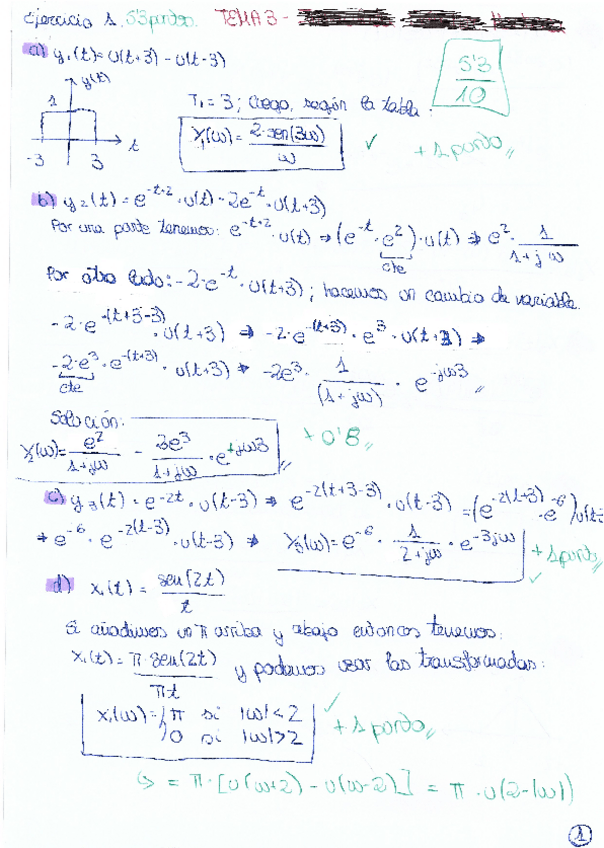 Ejercicio 1. 5'3 puntos. TEMA 3 -
a) y₁(t)= u(t+3) - u(t-3)
5'3
10
y(t)
1
-3 3 t
T₁ = 3; luego, según la tabla:
Y₁(ω) = 2·sen(3ω) / ω ✓ + 1 punto
b) y₂(t) = e^{-t+2}·u(t) - 2e^{-t}·u(t+3)
Por una parte tenemos: e^{-t+2}·u(t) ⇒ (e^{-t}·e²)·u(t) ⇒ e²· 1/(1+jω)
cte
Por otro lado: -2·e^{-t}·u(t+3); hacemos un cambio de variable.
-2·e^{-(t+3-3)}·u(t+3) ⇒ -2·e^{-(t+3)}·e³·u(t+3) ⇒
-2·e³·e^{-(t+3)}·u(t+3) ⇒ -2e³· 1/(1+jω) · e^{-jω3}
cte
Solución:
Y₂(ω)= e²/(1+jω) - 2e³/(1+jω) · e^{+jω3} + 0'8
c) y₃(t) = e^{-2t}·u(t-3) ⇒ e^{-2(t+3-3)}·u(t-3) = (e^{-2(t-3)}·e^{-6})u(t-3
⇒ e^{-6}·e^{-2(t-3)}·u(t-3) ⇒ Y₃(ω)= e^{-6} · 1/(2+jω) · e^{-3jω} + 1 punto ✓
d) x₁(t) = sen(2t) / t
Si añadimos un π arriba y abajo entonces tenemos:
x₁(t) = π·sen(2t) / πt y podemos usar las transformadas:
X₁(ω) = { π si |ω| < 2 ✓
0 si |ω| > 2 + 1 punto
↳ = π·[u(ω+2) - u(ω-2)] = π·u(2-|ω|)
1